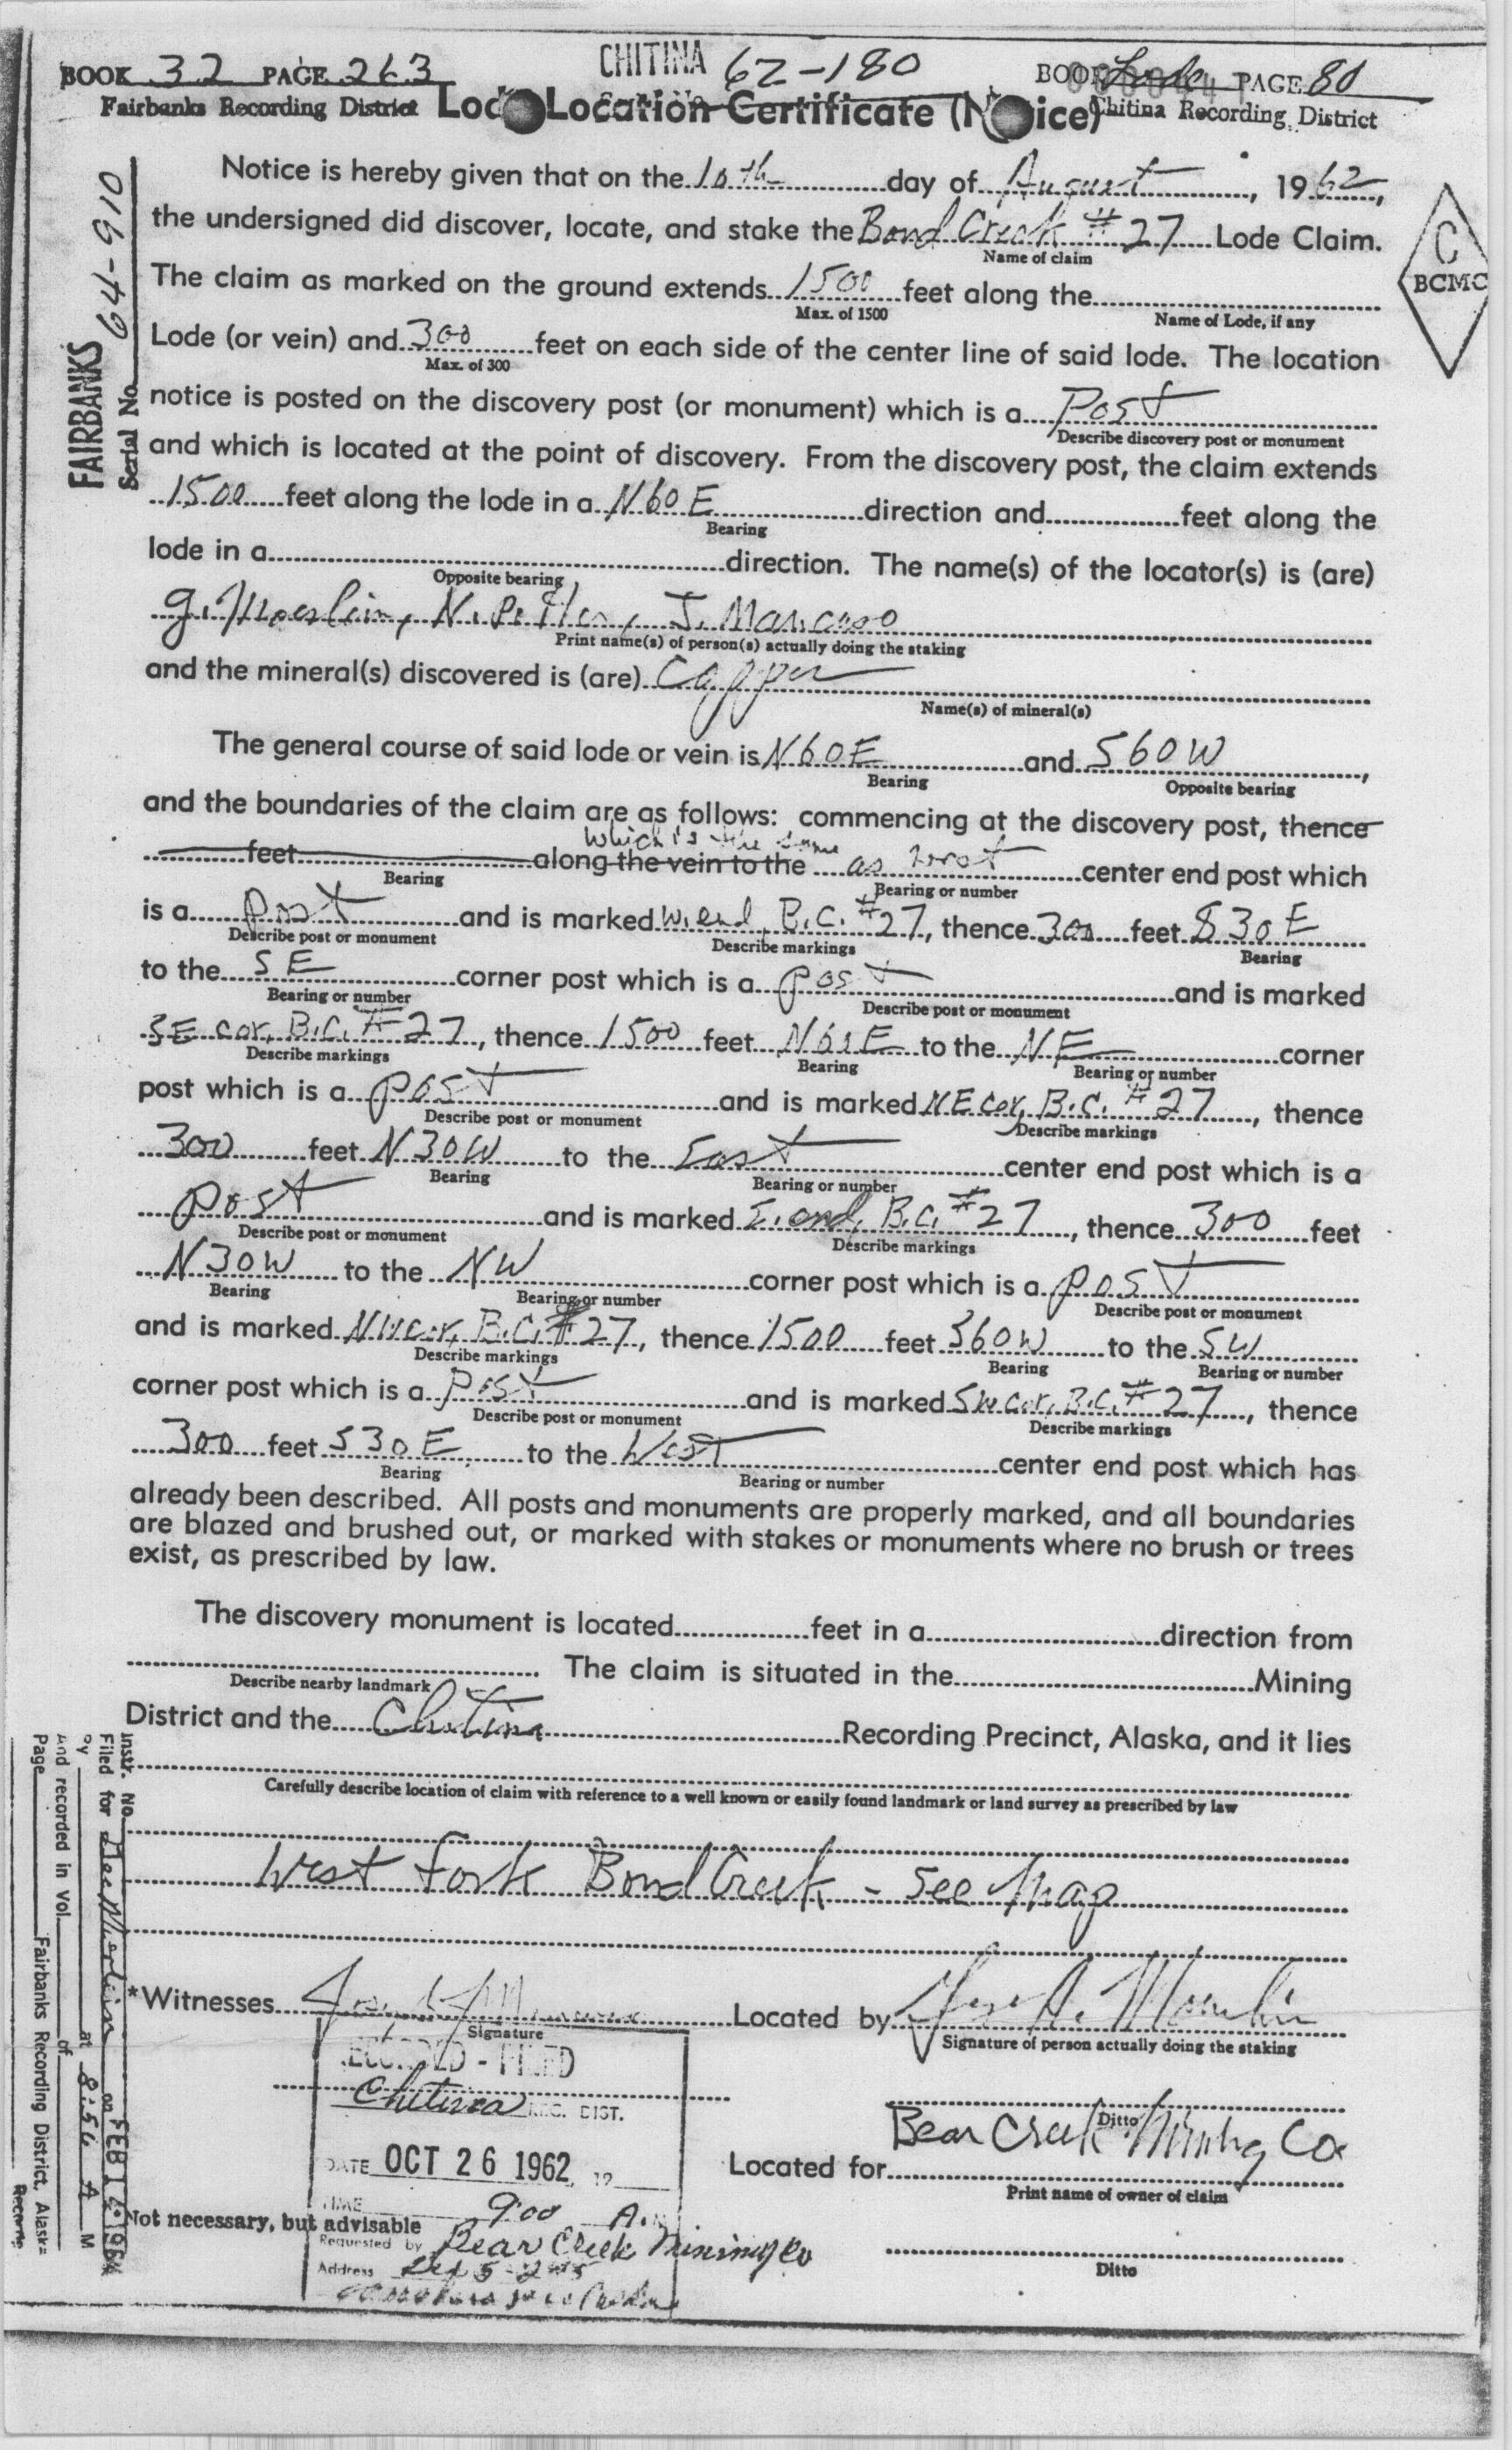 BOOK 32 PAGE 263
Fairbanks Recording District
CHITINA 62-180
BOOK Lode PAGE 80
Chitina Recording District
Lode Location Certificate (Notice)
FAIRBANKS
Serial No. 64-910
C
BCMC
Notice is hereby given that on the 10th day of August, 1962,
the undersigned did discover, locate, and stake the Bond Creek #27 Lode Claim.
Name of claim
The claim as marked on the ground extends 1500 feet along the
Max. of 1500 Name of Lode, if any
Lode (or vein) and 300 feet on each side of the center line of said lode. The location
Max. of 300
notice is posted on the discovery post (or monument) which is a Post
Describe discovery post or monument
and which is located at the point of discovery. From the discovery post, the claim extends
1500 feet along the lode in a N60E direction and feet along the
Bearing
lode in a direction. The name(s) of the locator(s) is (are)
Opposite bearing
G. Moerlein, N. J. Mancuso
Print name(s) of person(s) actually doing the staking
and the mineral(s) discovered is (are) Copper
Name(s) of mineral(s)
The general course of said lode or vein is N60E and S60W,
Bearing Opposite bearing
and the boundaries of the claim are as follows: commencing at the discovery post, thence
which is the same
feet along the vein to the as west center end post which
Bearing Bearing or number
is a Post and is marked W. end, B.C. #27, thence 300 feet S30E
Describe post or monument Describe markings Bearing
to the SE corner post which is a post and is marked
Bearing or number Describe post or monument
SE cor, B.C. #27, thence 1500 feet N60E to the NE corner
Describe markings Bearing Bearing or number
post which is a post and is marked NE cor, B.C. #27, thence
Describe post or monument Describe markings
300 feet N30W to the East center end post which is a
Bearing Bearing or number
post and is marked E. end, B.C. #27, thence 300 feet
Describe post or monument Describe markings
N30W to the NW corner post which is a post
Bearing Bearing or number Describe post or monument
and is marked NW cor, B.C. #27, thence 1500 feet S60W to the SW
Describe markings Bearing Bearing or number
corner post which is a Post and is marked SW cor, B.C. #27, thence
Describe post or monument Describe markings
300 feet S30E to the West center end post which has
Bearing Bearing or number
already been described. All posts and monuments are properly marked, and all boundaries
are blazed and brushed out, or marked with stakes or monuments where no brush or trees
exist, as prescribed by law.
The discovery monument is located feet in a direction from
The claim is situated in the Mining
Describe nearby landmark
District and the Chitina Recording Precinct, Alaska, and it lies
Carefully describe location of claim with reference to a well known or easily found landmark or land survey as prescribed by law
West Fork Bond Creek - See Map
*Witnesses Located by
Signature Signature of person actually doing the staking
RECORDED - FILED
Chitina REC. DIST.
DATE OCT 26 1962 19
TIME 9:00 A.M
Requested by Bear Creek Mining Co
Address
Ditto
Located for Bear Creek Mining Co
Print name of owner of claim
Ditto
Not necessary, but advisable
Instr. No.
Filed for on FEB 1964
by at 8:56 A M
And recorded in Vol. of
Page Fairbanks Recording District, Alaska